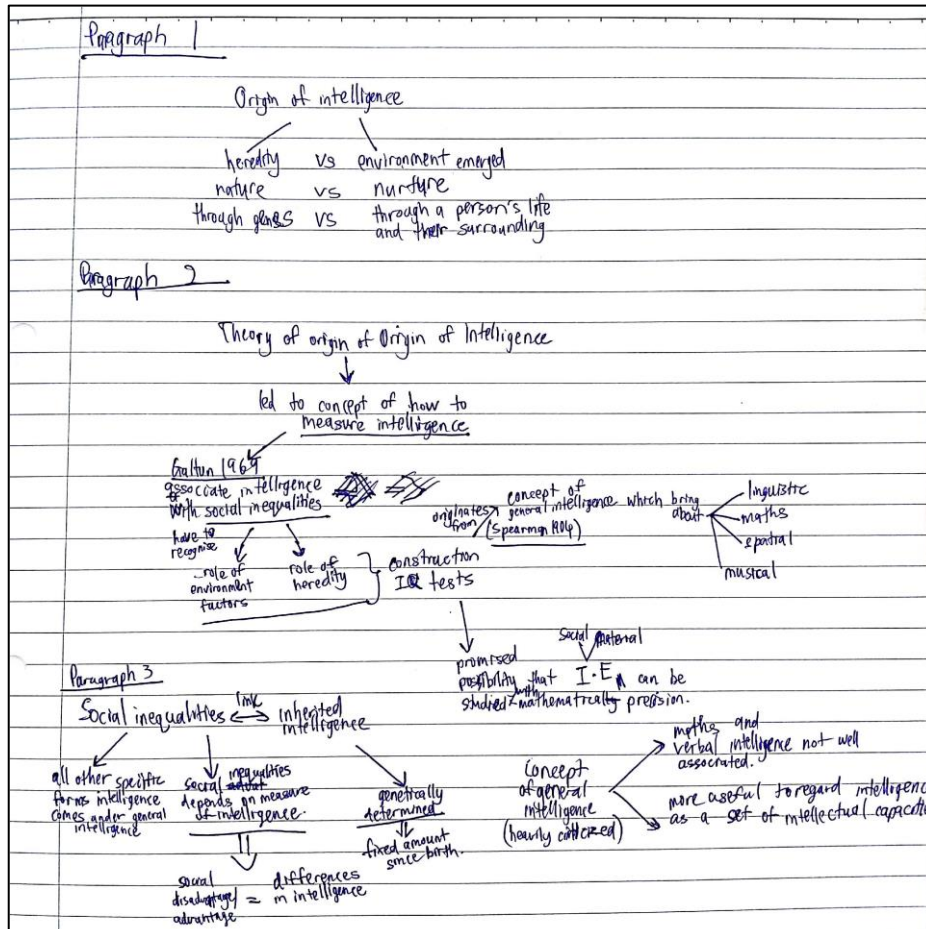 Paragraph 1
Origin of intelligence
heredity vs environment emerged
nature vs nurture
through genes vs through a person's life
and their surrounding
Paragraph 2
Theory of origin of Origin of Intelligence
led to concept of how to
measure intelligence
Galton 1969
associate intelligence
with social inequalities
have to
recognise
role of
environment
factors
role of
heredity
construction
IQ tests
originates
from
concept of
general intelligence which bring
about
(Spearman 1904)
linguistic
maths
spatial
musical
promised
possibility that I.E, can be
social material
studied with mathematically precision.
Paragraph 3
Social inequalities link inherited
intelligence
all other specific
forms intelligence
comes under general
intelligence
social inequalities
depends on measure
of intelligence.
social
disadvantage/
advantage
= differences
in intelligence
genetrally
determined
fixed amount
since birth.
Concept
of general
intelligence
(heavily criticized)
maths and
verbal intelligence not well
associated.
more useful to regard intelligence
as a set of intellectual capacities